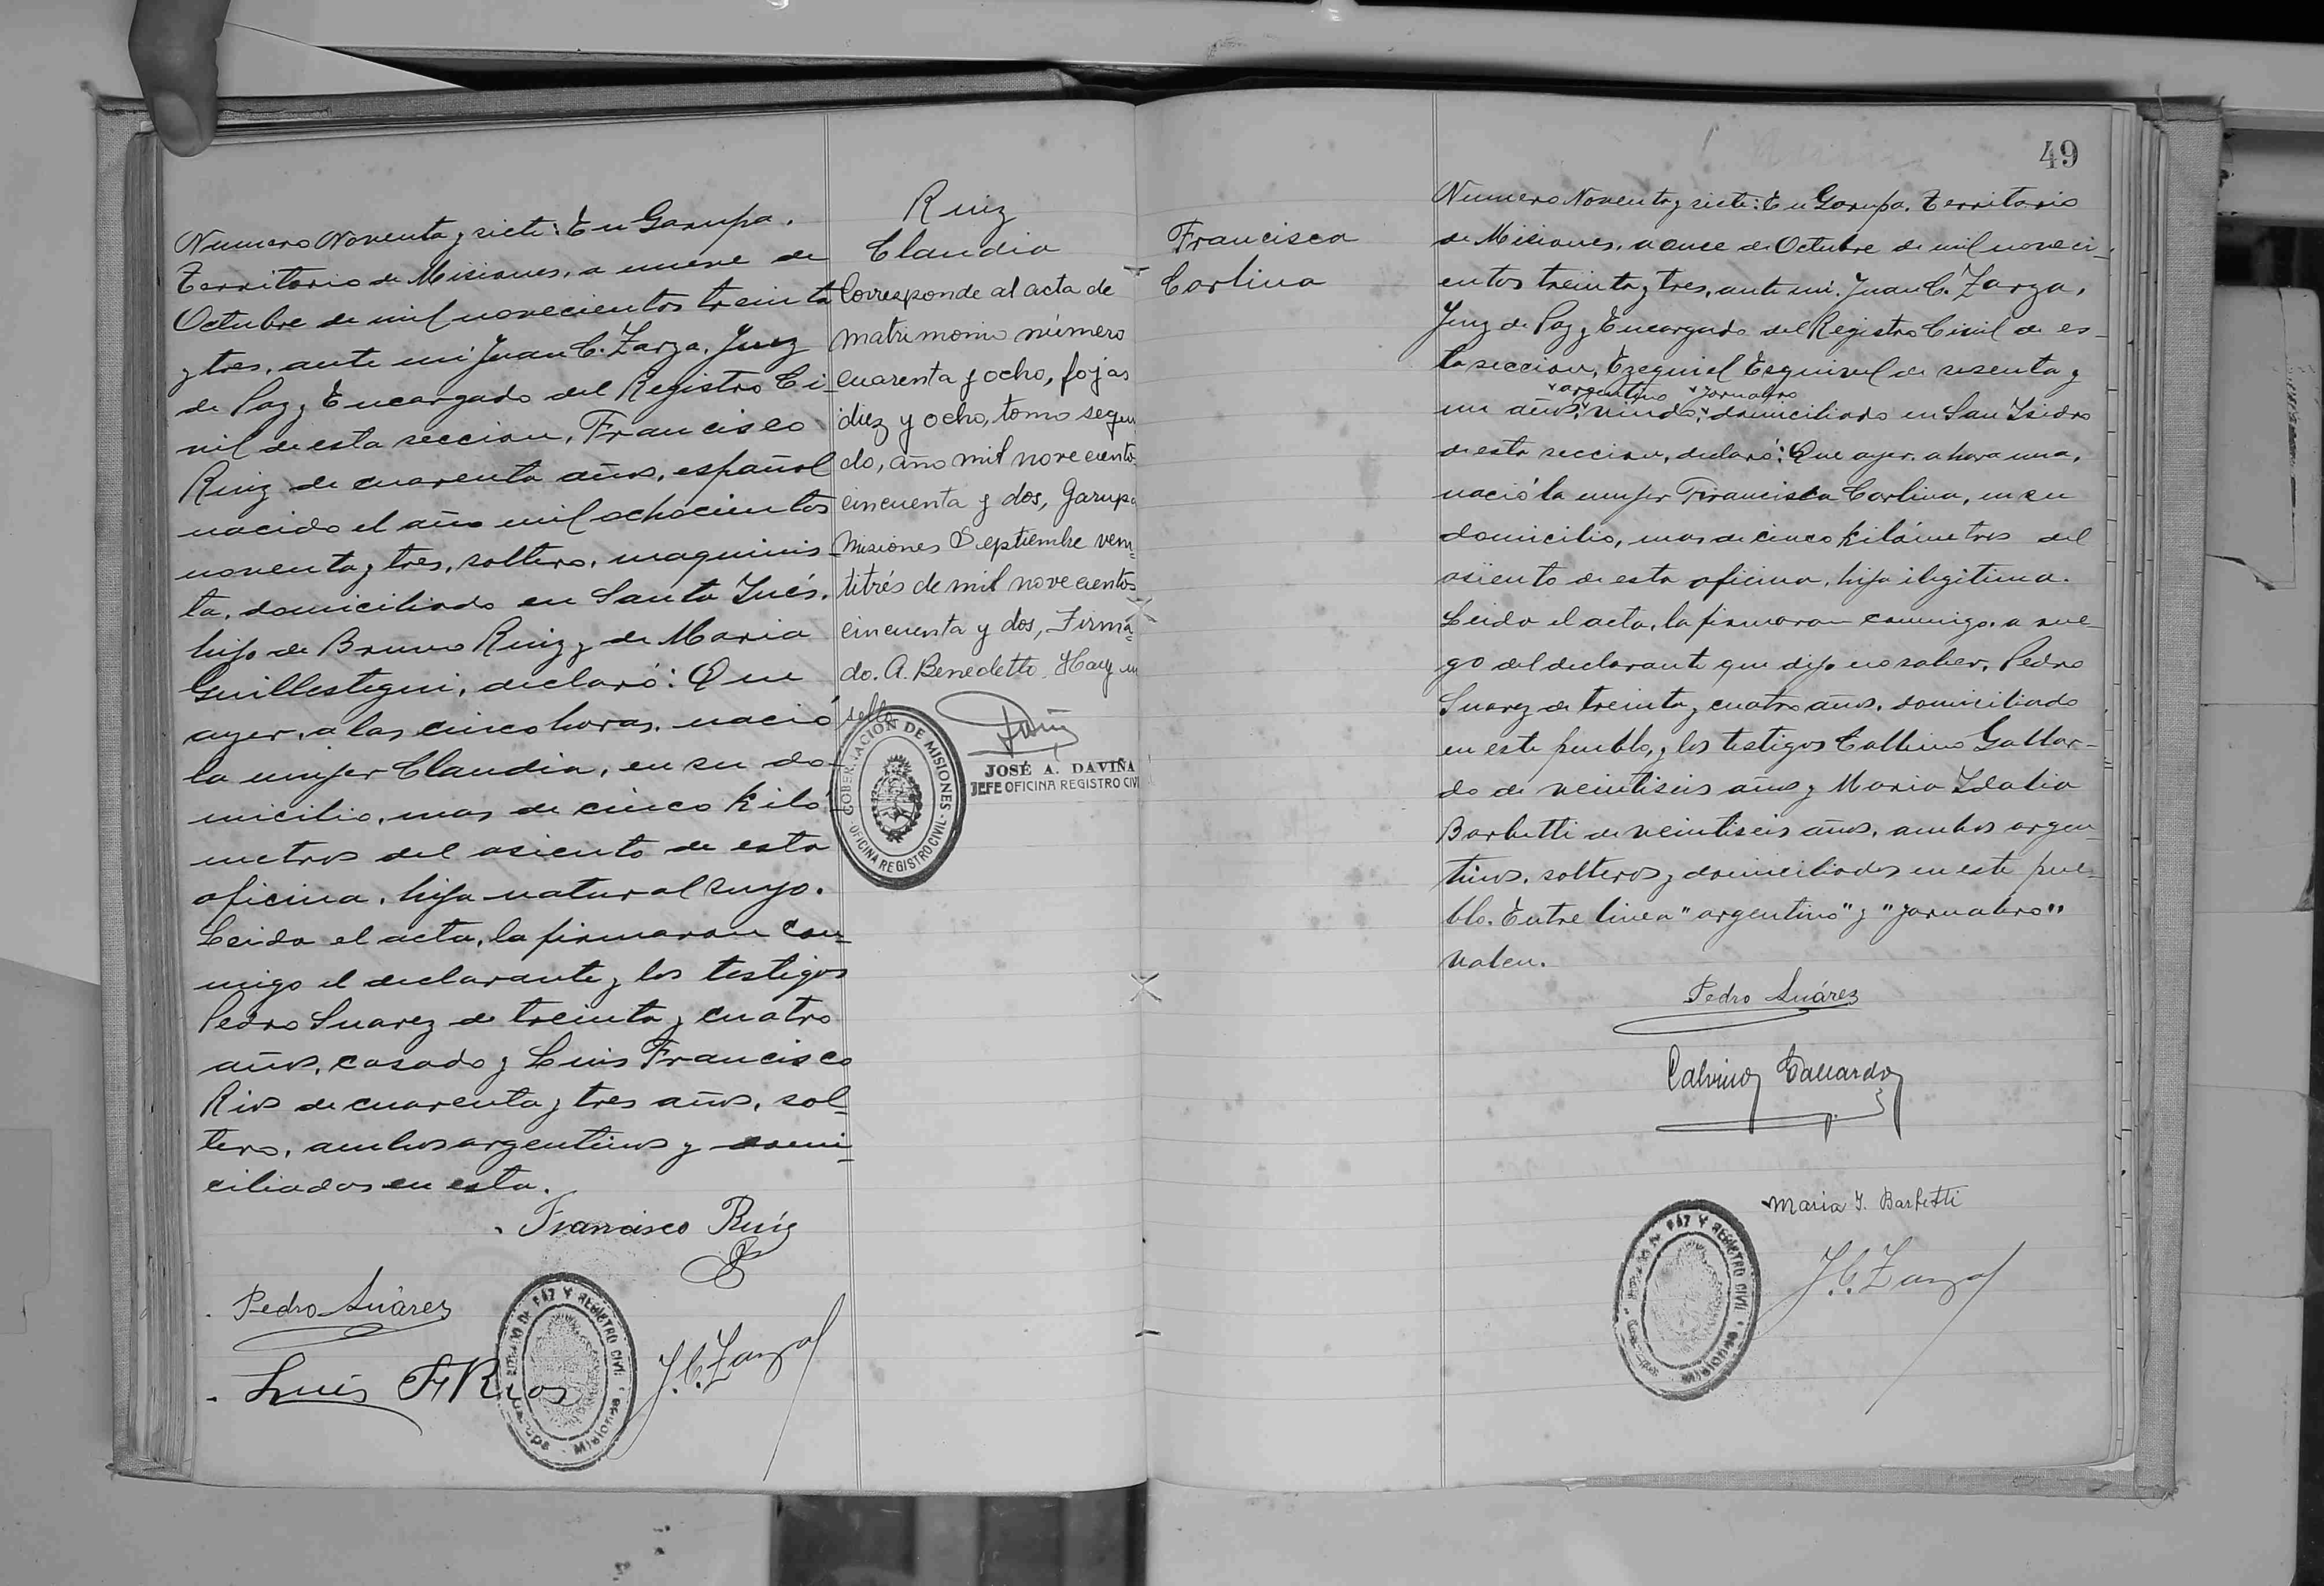 Numero Noventa y siete: En Garupa.
Territorio de Misiones, a nueve de
Octubre de mil novecientos treinta
y tres, ante mi Juan C. Zarza, Juez
de Paz y Encargado del Registro Ci-
vil de esta seccion, Francisco
Ruiz de cuarenta años, español
nacido el año mil ochocientos
noventa y tres, soltero, maquinis-
ta, domiciliado en Santa Inés,
hijo de Bruno Ruiz y de Maria
Guillestegui, declaró: Que
ayer, a las cinco horas, nació
la mujer Claudia, en su do-
micilio, mas de cinco kiló-
metros del asiento de esta
oficina, hija natural suya.
Leida el acta, la firmaron con-
migo el declarante y los testigos
Pedro Suarez de treinta y cuatro
años, casado y Luis Francisco
Rios de cuarenta y tres años, sol-
tero, ambos argentinos y domi-
ciliados en esta.
Francisco Ruiz
Pedro Suárez
Luis F Rios
J.C. Zarza
JUZGADO DE PAZ Y REGISTRO CIVIL
Garupa - Misiones
Ruiz
Claudia
Corresponde al acta de
matrimonio número
cuarenta y ocho, fojas
diez y ocho, tomo segun
do, año mil novecientos
cincuenta y dos, Garupa
Misiones Septiembre vein-
titrés de mil novecientos
cincuenta y dos, Firma-
do. A. Benedetto. Hay un
sello
GOBERNACIÓN DE MISIONES
OFICINA REGISTRO CIVIL
JOSÉ A. DAVIÑA
JEFE OFICINA REGISTRO CIVI
Francisca
Carlina
49
Numero Noventa y siete: En Garupa. Territorio
de Misiones, a once de Octubre de mil noveci-
entos treinta y tres, ante mi. Juan C. Zarza,
Juez de Paz y Encargado del Registro Civil de es-
ta seccion, Ezequiel Esquivel de sesenta y
argentino jornalero
un años, viudo, domiciliado en San Isidro
de esta seccion, declaró: Que ayer, a hora una,
nació la mujer Francisca Carlina, en su
domicilio, mas de cinco kilómetros del
asiento de esta oficina, hija ilegitima.
Leida el acta, la firmaron conmigo, a rue-
go del declarante que dijo no saber, Pedro
Suarez de treinta y cuatro años, domiciliado
en este pueblo, y los testigos Calvino Gallar-
do de veintiseis años y Maria Idalia
Barbetti de veintiseis años, ambos argen-
tinos, solteros y domiciliados en este pue-
blo. Entre linea "argentino" y "jornalero"
valen.
Pedro Suárez
Calvino Gallardo
Maria I. Barbetti
J.C. Zarza
JUZGADO DE PAZ Y REGISTRO CIVIL
Garupa - Misiones